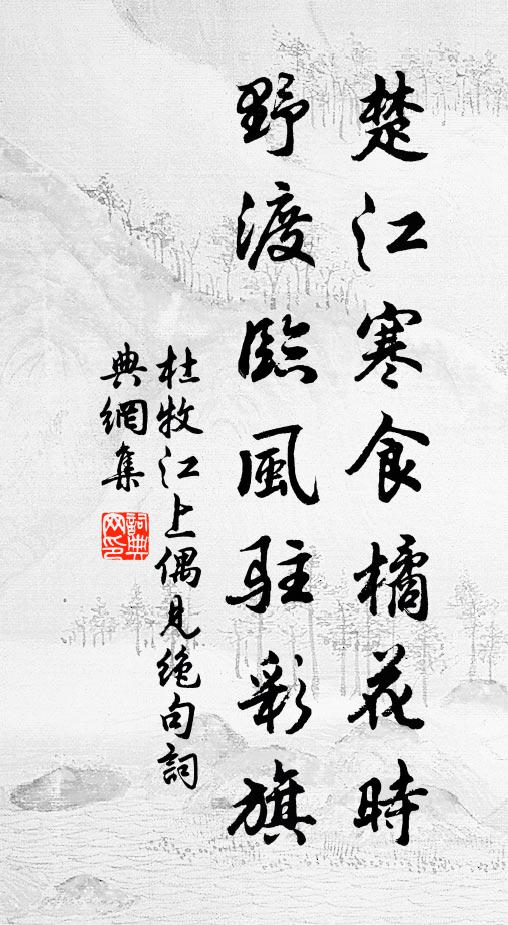 楚江寒食橘花時
野渡臨風駐彩旗
杜牧江上偶見绝句詞
典網集
詞典
网印